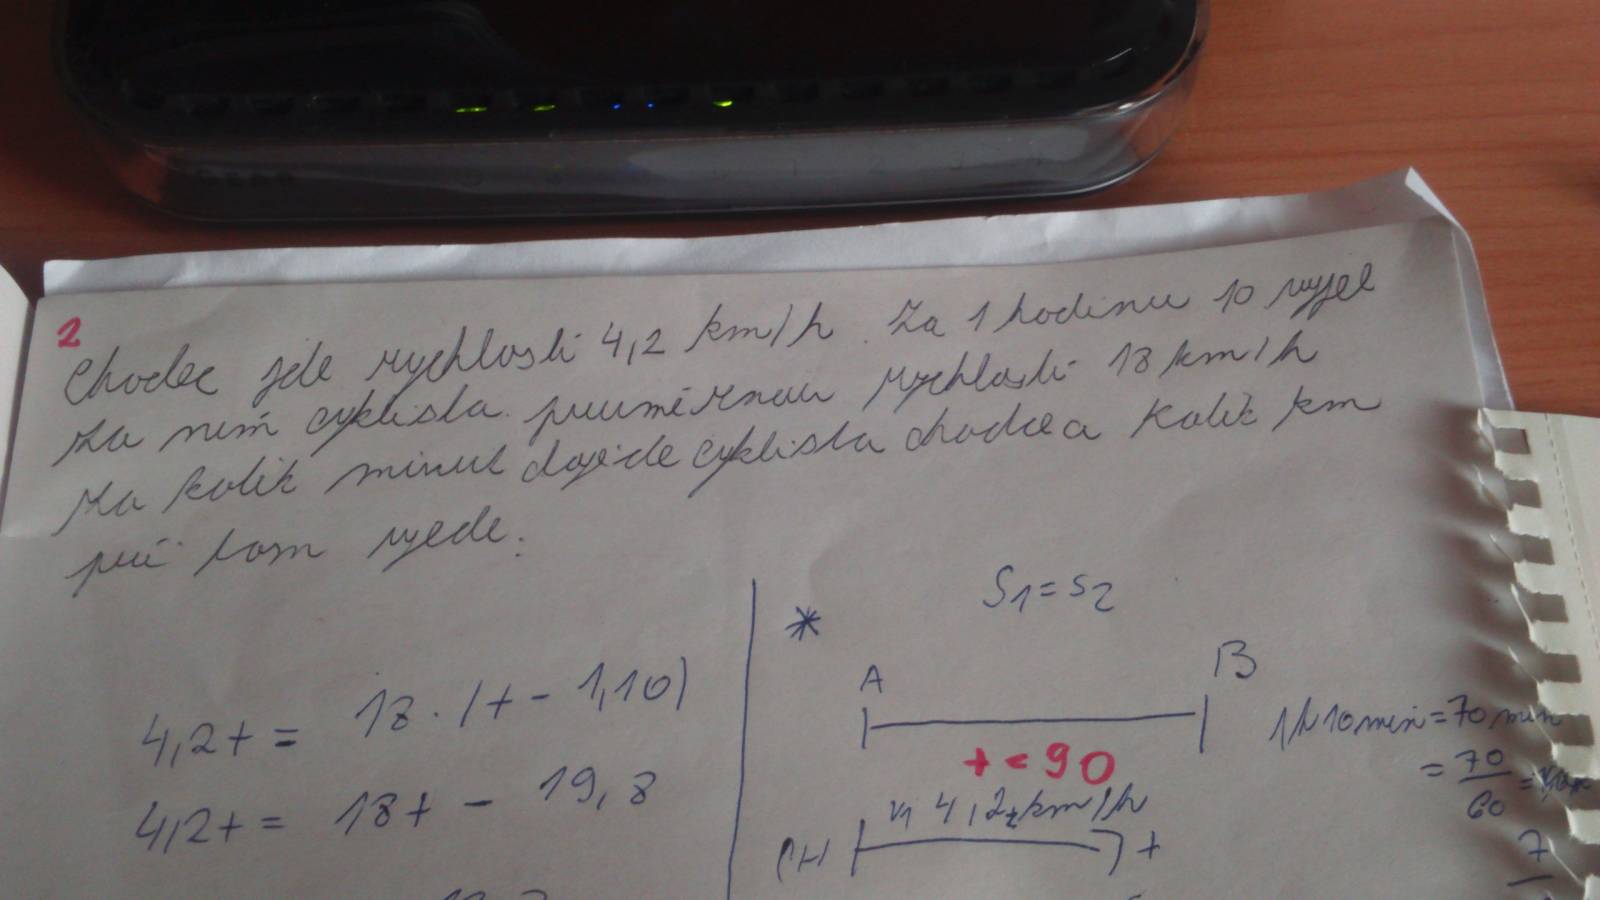 2
Chodec jde rychlostí 4,2 km/h. Za 1 hodinu 10 vyjel
za ním cyklista průměrnou rychlostí 18 km/h
za kolik minut dojede cyklista chodce a kolik km
při tom ujede.
4,2t = 18.(t - 1,10)
4,2t = 18t - 19,8
*
S1=s2
A B
t = 90
1h10min=70min
= 70/60 =
7
v1 4,2 km/h
CH t